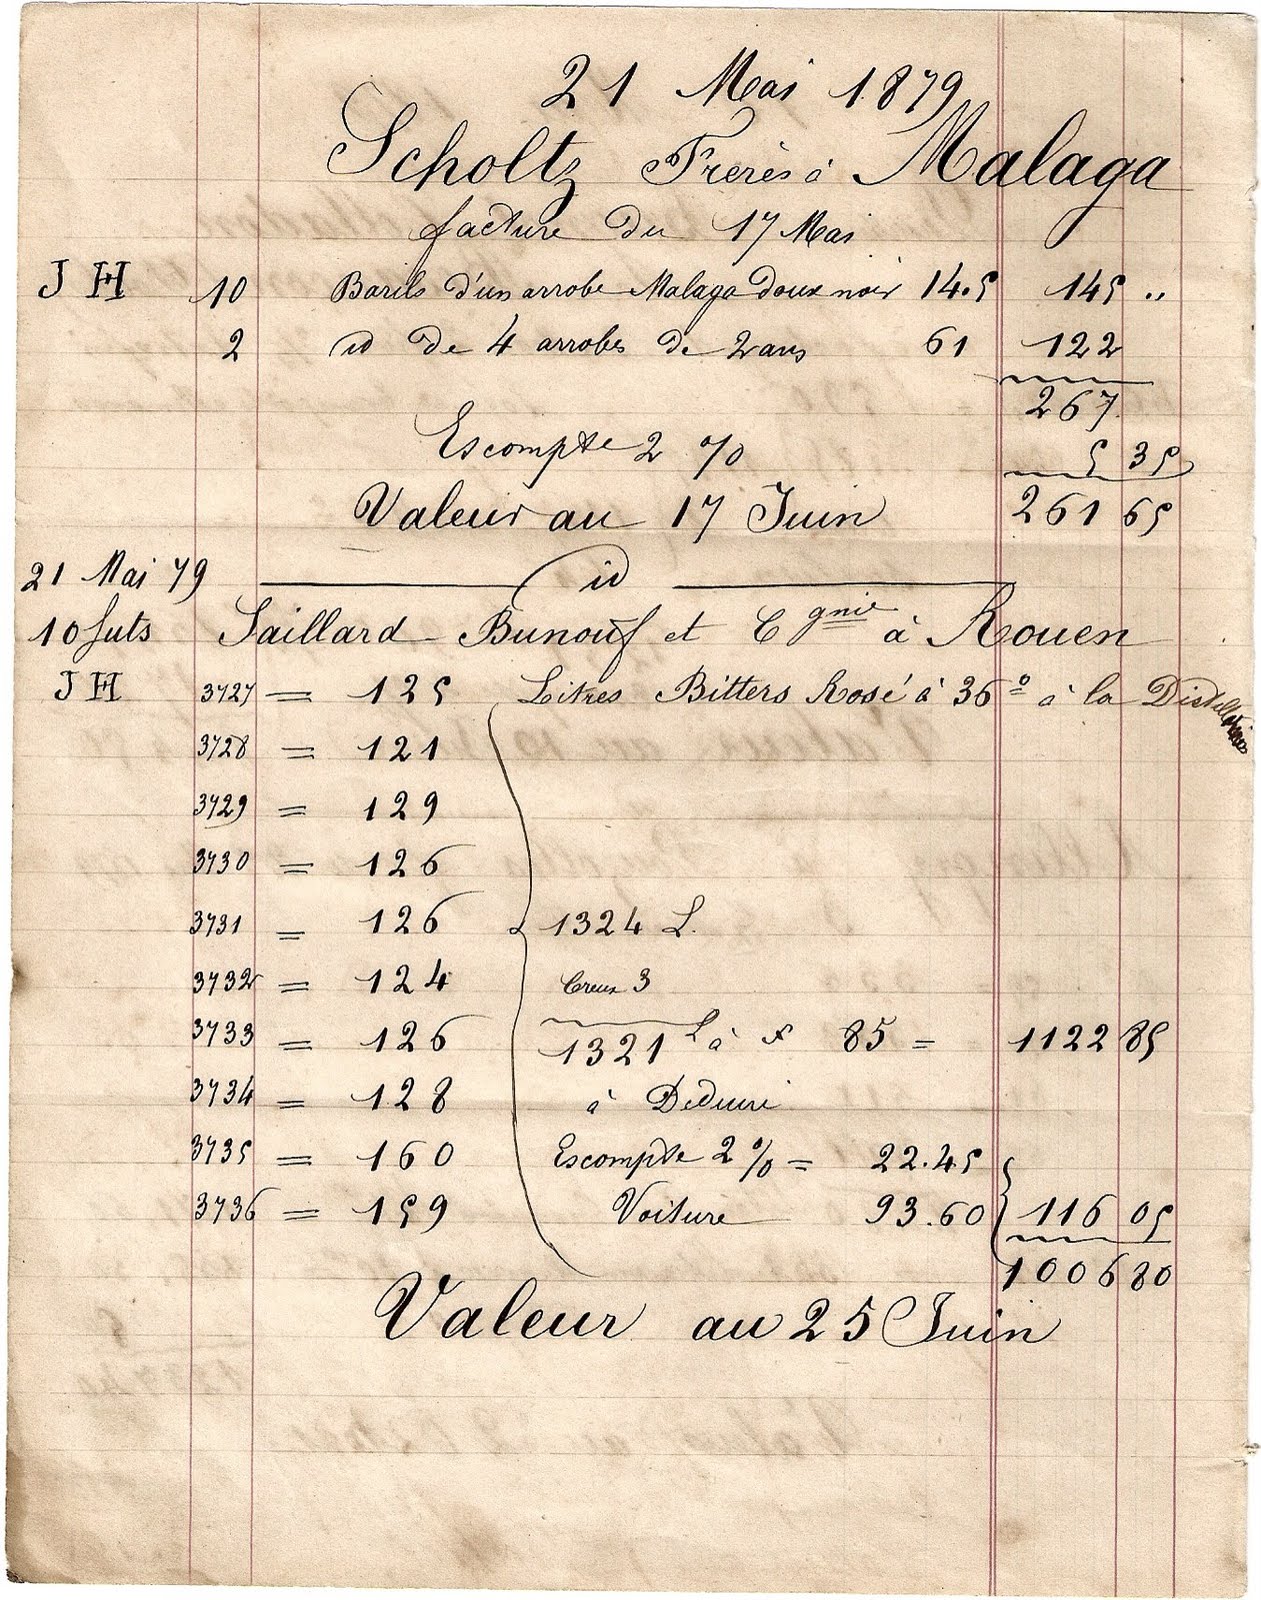 21 Mai 1879
Scholtz Frères à Malaga
facture du 17 Mai
JH 10 Barils d'un arrobe Malaga doux noir 14.5 145 "
2 id de 4 arrobes de 2 ans 61 122
267
Escompte 2 % 5 35
Valeur au 17 Juin 261 65
21 Mai 79 id
10 futs Saillard - Bunouf et Cgnie à Rouen
JH 3727 = 125 Litres Bitters Rosé à 36° à la
3728 = 121
3729 = 129
3730 = 126
3731 = 126 1324 L.
3732 = 124 Creux 3
3733 = 126 1321 L à 85 = 1122 85
3734 = 128 à Deduire
3735 = 160 Escompte 2 % = 22.45
3736 = 159 Voiture 93.60 116 05
1006 80
Valeur au 25 Juin